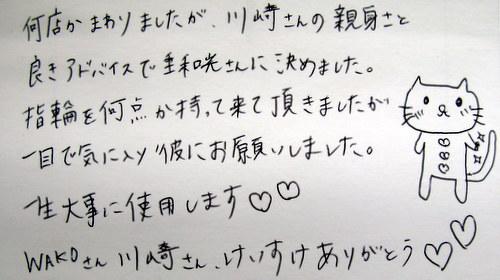 何店かまわりましたが、川崎さんの親身さと
良きアドバイスで亜和光さんに決めました。
指輪を何点か持って来て頂きましたが
一目で気に入り彼にお願いしました。
一生大事に使用します♡♡
WAKOさん 川崎さん、けいすけありがとう♡♡